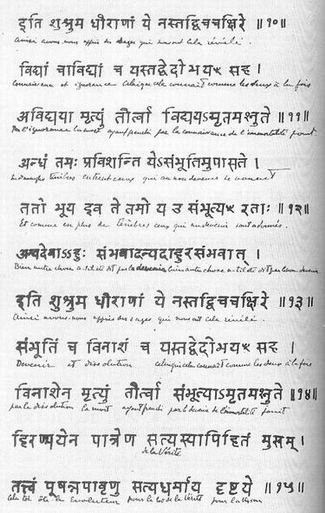 इति शुश्रुम धीराणां ये नस्तद्विचचक्षिरे ॥१०॥
Ainsi avons-nous appris des sages qui nous ont cela révélé.
विद्यां चाविद्यां च यस्तद्वेदोभयꣳ सह ।
Connaissance et ignorance celui qui cela connaît comme les deux à la fois
अविद्यया मृत्युं तीर्त्वा विद्ययाऽमृतमश्नुते ॥११॥
Par l'ignorance la mort ayant franchi par la connaissance de l'immortalité jouit
अन्धं तमः प्रविशन्ति येऽसंभूतिमुपासते ।
ténèbres entrent ceux qui au non devenir se vouent
ततो भूय इव ते तमो य उ संभूत्याꣳ रताः ॥१२॥
Et comme en plus de ténèbres ceux qui au devenir sont adonnés.
अन्यदेवाऽऽहुः संभवादन्यदाहुरसंभवात् ।
Bien autre chose a-t-il été dit par le devenir bien autre chose a-t-il été dit par le non devenir
इति शुश्रुम धीराणां ये नस्तद्विचचक्षिरे ॥१३॥
Ainsi avons-nous appris des sages qui nous ont cela révélé.
संभूतिं च विनाशं च यस्तद्वेदोभयꣳ सह ।
Devenir et dissolution celui qui cela connaît comme les deux à la fois
विनाशेन मृत्युं तीर्त्वा संभूत्याऽमृतमश्नुते ॥१४॥
par la dissolution la mort ayant franchi par le devenir de l'immortalité jouit
हिरण्मयेन पात्रेण सत्यस्यापिहितं मुखम्।
de la Vérité
तत्त्वं पूषन्नपावृणु सत्यधर्माय दृष्टये ॥१५॥
pour la loi de la Vérité pour la vision